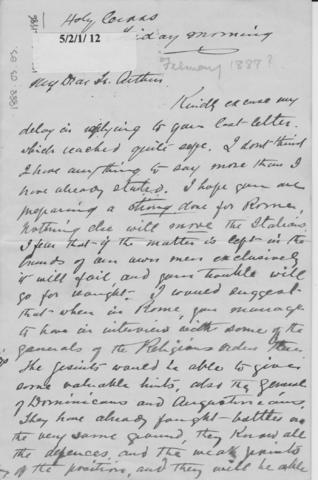 Holy Cross
5/2/1/12
Friday morning
February 1888?
My Dear Fr. Arthur
Kindly excuse my
delay in replying to your last letter
which reached quite safe. I don't think
I have anything to say more than I
have already stated. I hope you are
preparing a strong case for Rome,
nothing else will move the Italians
I fear that if the matter is left in the
hands of our own men exclusively
it will fail and your trouble will
go for naught. I would suggest
that when in Rome, you manage
to have an interview with some of the
generals of the Religious orders there.
The Jesuits would be able to give
some valuable hints, also the General
of Dominicans and Augustinians.
They have already fought battles on
the very same ground, they know all
the defences, and the weak points
of the position, and they will be able